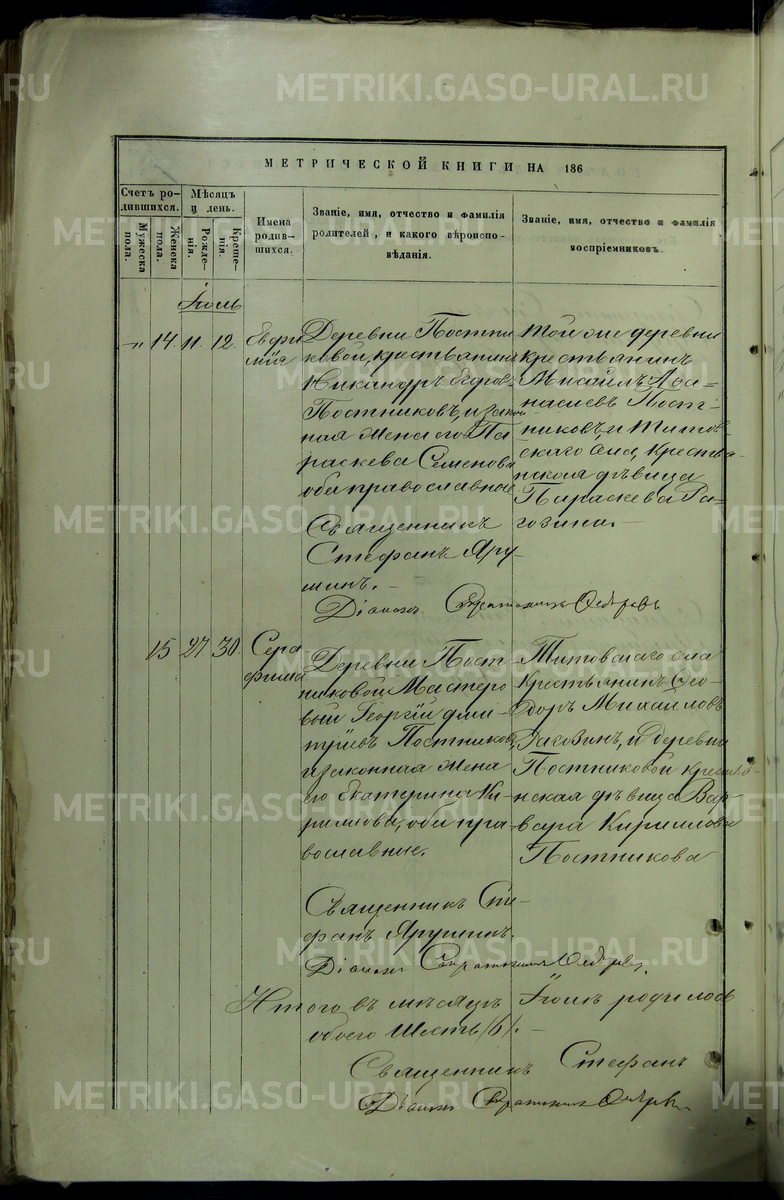 МЕТРИЧЕСКОЙ КНИГИ НА 186
Счетъ ро-
дившихся.
Мѣсяцъ
и день.
Мужеска
пола.
Женска
пола.
Рожде-
нія.
Креще-
нія.
Имена
родив-
шихся.
Званіе, имя, отчество и фамилія
родителей, и какого вѣроиспо-
вѣданія.
Званіе, имя, отчество и фамилія
воспріемниковъ.
Іюль
14. 11. 12.
Евфи
мія
Деревни Постни
ковой, крестьянинъ
Никандръ
Постниковъ, и закон
ная жена его Па
раскева Семенова
оба православные
Священникъ
Стефанъ Яру-
шинъ.
Діаконъ
той же деревни
крестьянинъ
Мисаилъ Аѳа-
насіевъ Пост-
никовъ, и Титов-
скаго села, Крестья-
нская дѣвица
Параскева Ра-
гозина.
15 27 30
Сера
фима
Деревни Пост-
никовой Мастеро
вый Георгій Дми
тріевъ Постниковъ,
и законная жена
его Екатерина Ки
рилова, оба пра-
вославные.
Священникъ Сте-
фанъ Ярушинъ.
Діаконъ
Титовскаго села
Крестьянинъ Ѳео-
доръ Михайловъ
Рагозинъ, и деревни
Постниковой Крестья-
нская дѣвица Вар-
вара Кириллова
Постникова
Итого въ мѣсяцѣ Іюлѣ родилось
обоего шесть /6/.
Священникъ Стефанъ
Діаконъ
METRIKI.GASO-URAL.RU